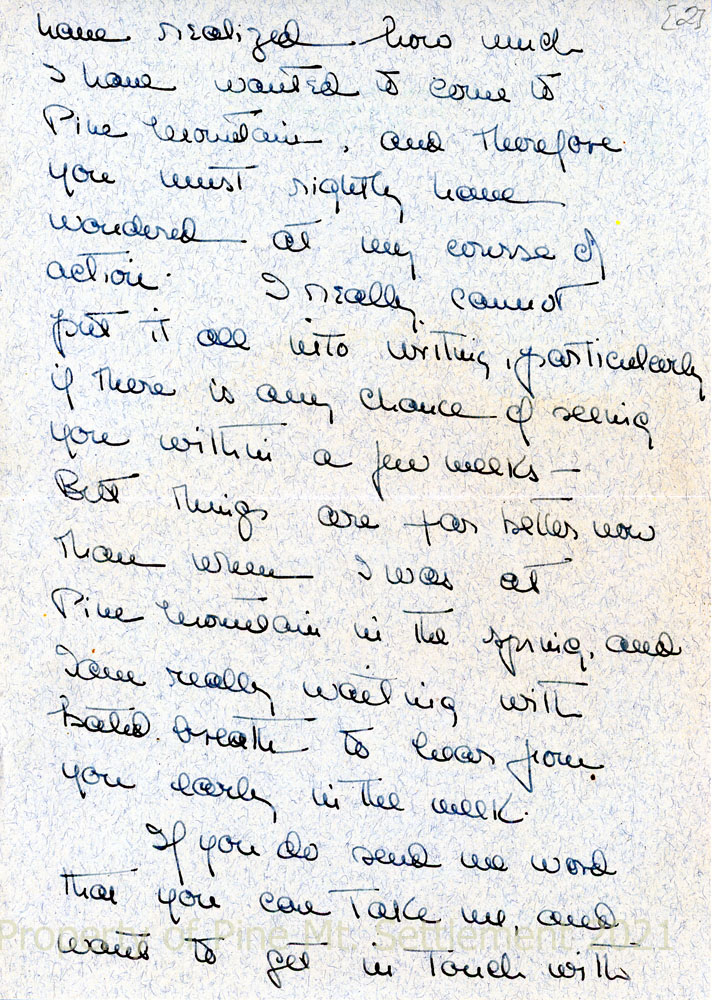 [2]
have realized how much
I have wanted to come to
Pine Mountain, and therefore
you must rightly have
wondered at my course of
action. I really cannot
put it all into writing, particularly
if there is any chance of seeing
you within a few weeks —
But things are far better now
than when I was at
Pine Mountain in the spring, and
I am really waiting with
bated breath to hear from
you early in the week.
If you do send me word
that you can take me, and
want to get in touch with
Property of Pine Mt. Settlement 2021